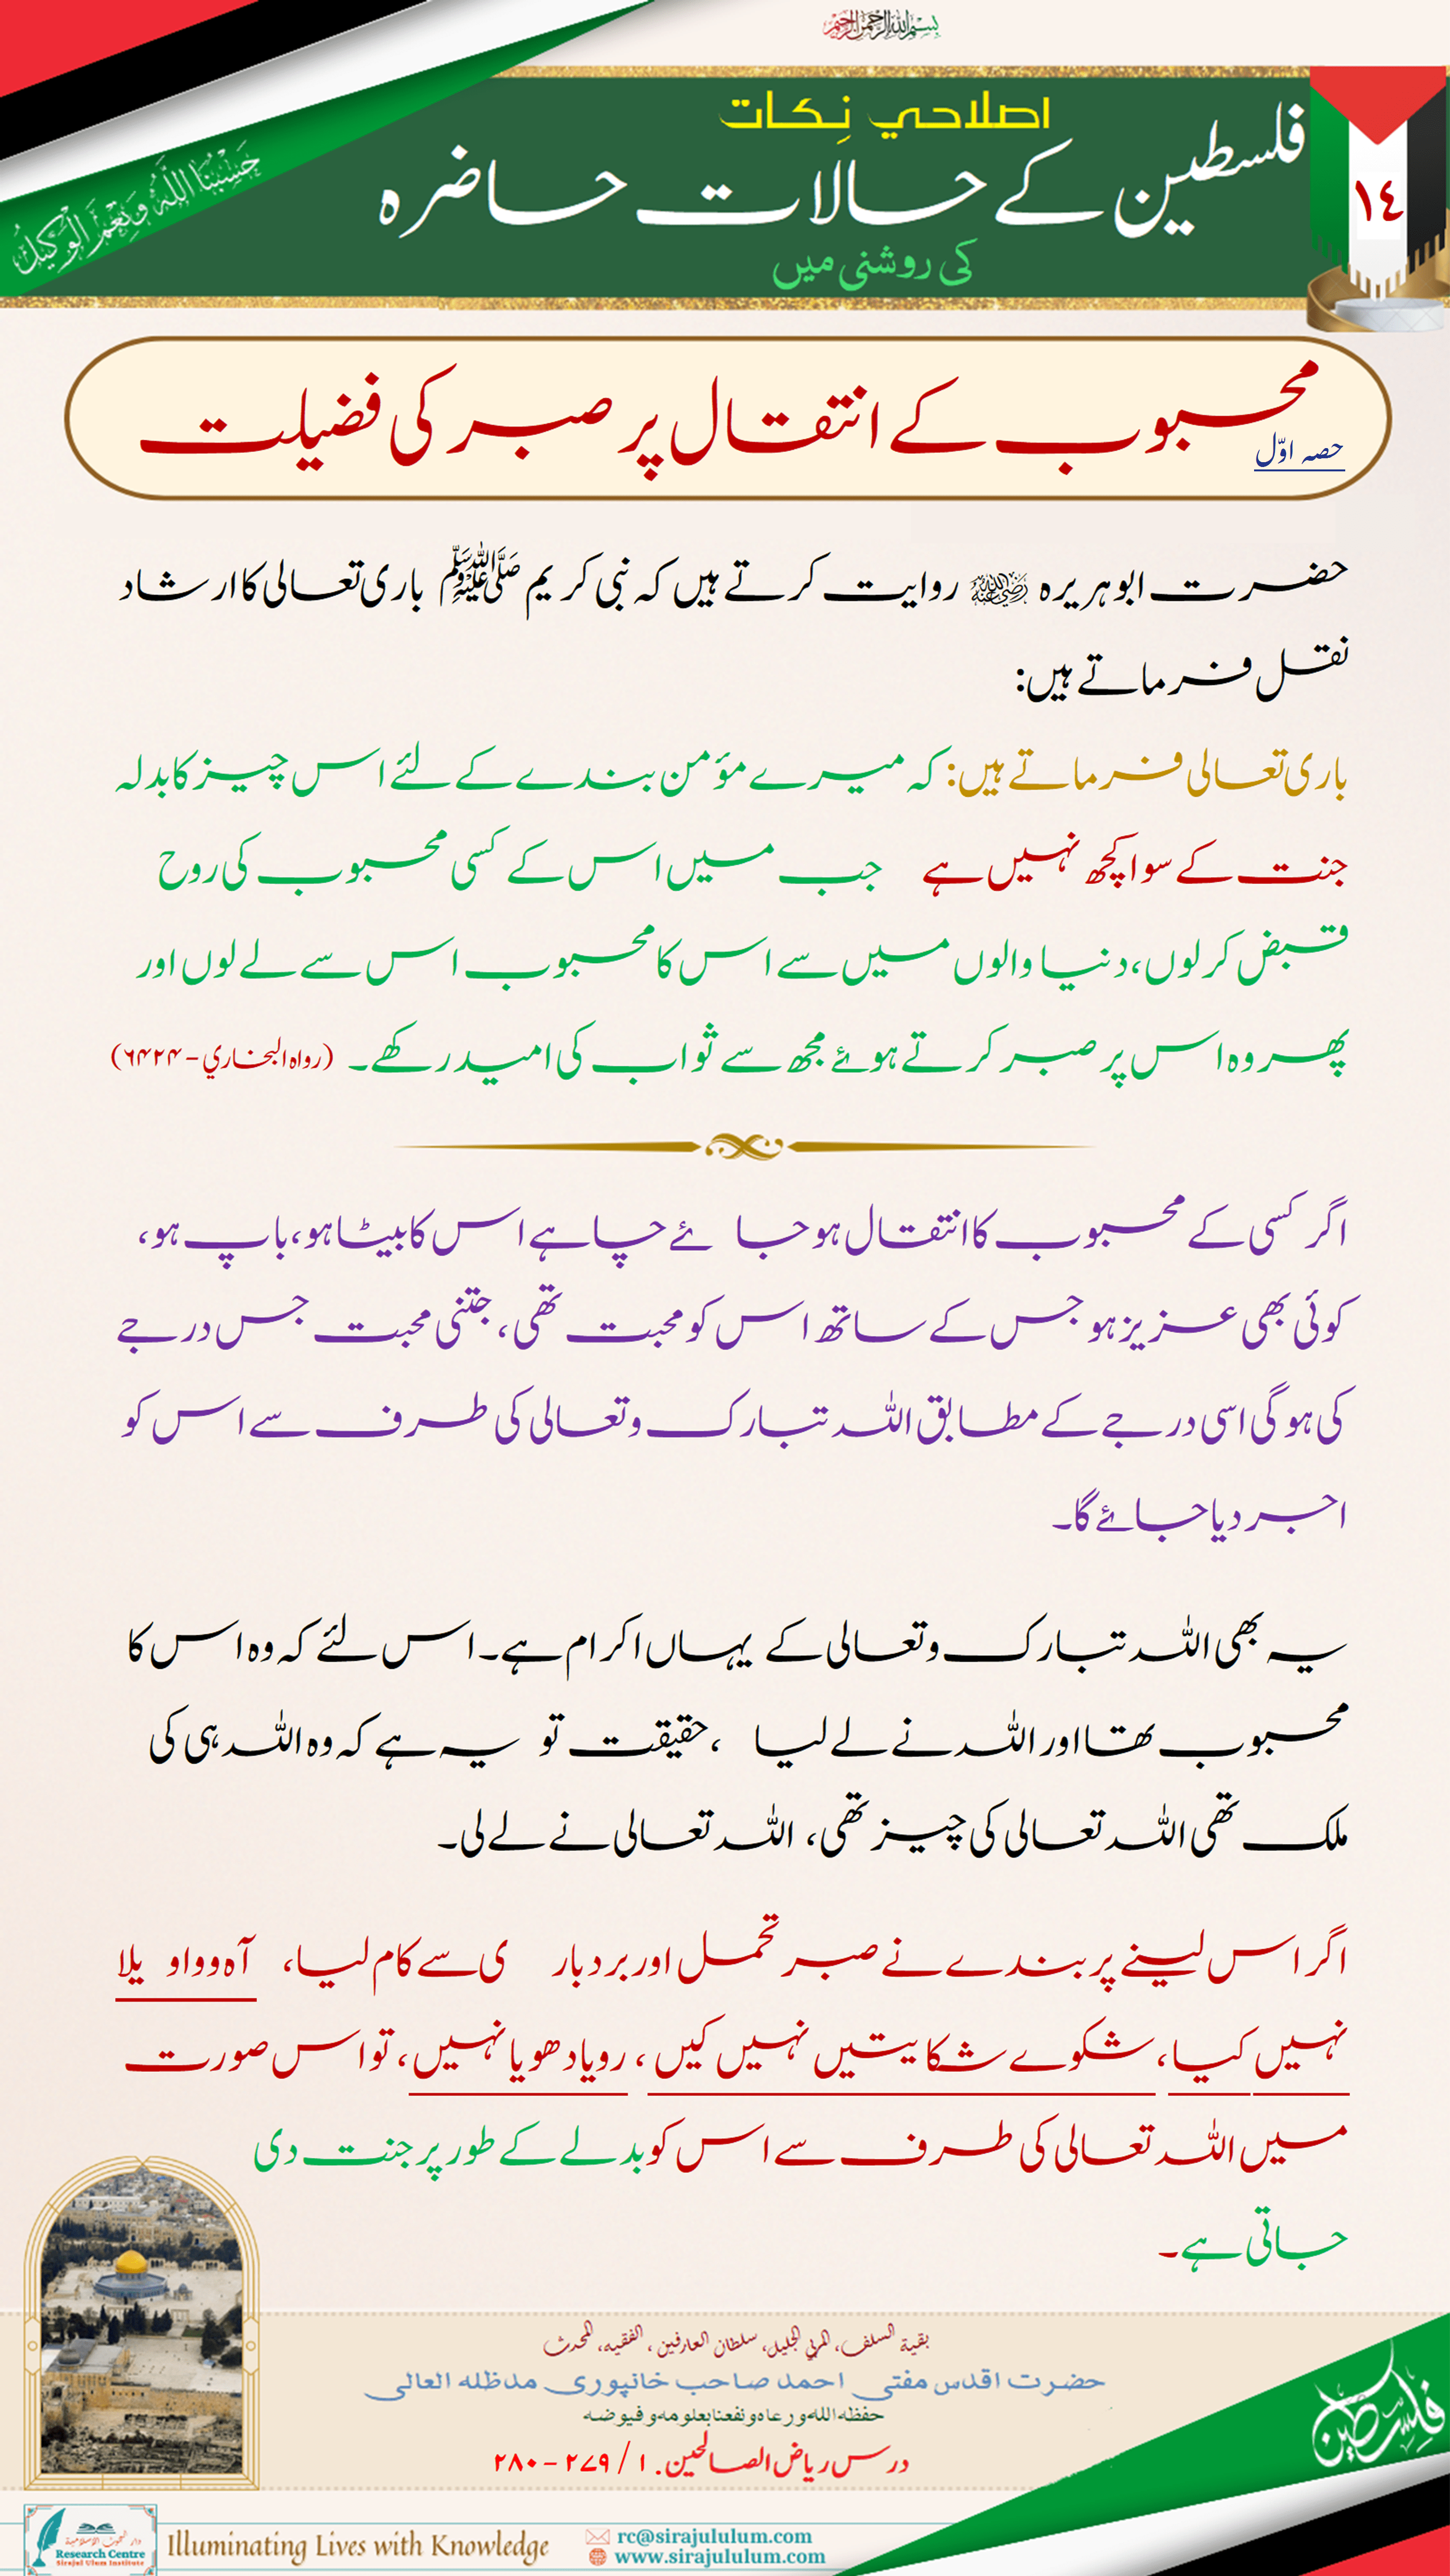 بسم الله الرحمن الرحيم
حَسْبُنَا اللَّهُ وَنِعْمَ الْوَكِيلُ
اصلاحي نِكات
فلسطین کے حالات حاضرہ
کی روشنی میں
١٤
محبوب کے انتقال پر صبر کی فضیلت
حصہ اوّل
حضرت ابوہریرہ رضی اللہ عنہ روایت کرتے ہیں کہ نبی کریم ﷺ باری تعالی کا ارشاد
نقل فرماتے ہیں:
باری تعالی فرماتے ہیں: کہ میرے مؤمن بندے کے لئے اس چیز کا بدلہ
جنت کے سوا کچھ نہیں ہے جب میں اس کے کسی محبوب کی روح
قبض کرلوں، دنیا والوں میں سے اس کا محبوب اس سے لے لوں اور
پھر وہ اس پر صبر کرتے ہوئے مجھ سے ثواب کی امید رکھے۔ (رواہ البخاري - ۶۴۲۴)
اگر کسی کے محبوب کا انتقال ہو جا ئے چاہے اس کا بیٹا ہو، باپ ہو،
کوئی بھی عزیز ہو جس کے ساتھ اس کو محبت تھی، جتنی محبت جس درجے
کی ہوگی اسی درجے کے مطابق اللہ تبارک وتعالی کی طرف سے اس کو
اجر دیا جائے گا۔
یہ بھی اللہ تبارک وتعالی کے یہاں اکرام ہے۔ اس لئے کہ وہ اس کا
محبوب تھا اور اللہ نے لے لیا ، حقیقت تو یہ ہے کہ وہ اللہ ہی کی
ملک تھی اللہ تعالی کی چیز تھی، اللہ تعالی نے لے لی۔
اگر اس لینے پر بندے نے صبر تحمل اور بردبار ی سے کام لیا، آہ و واو یلا
نہیں کیا، شکوے شکایتیں نہیں کیں، رویا دھویا نہیں، تو اس صورت
میں اللہ تعالی کی طرف سے اس کو بدلے کے طور پر جنت دی
جاتی ہے۔
بقية السلف، المربي الجليل، سلطان العارفين، الفقيه، المحدث
حضرت اقدس مفتی احمد صاحب خانپوری مدظلہ العالی
حفظه الله ورعاه ونفعنا بعلومه وفيوضه
درس ریاض الصالحین. ۱ / ۲۷۹ - ۲۸۰
فلسطين
دار البحوث الإسلامية
Research Centre
Sirajul Ulum Institute
Illuminating Lives with Knowledge
rc@sirajululum.com
www.sirajululum.com